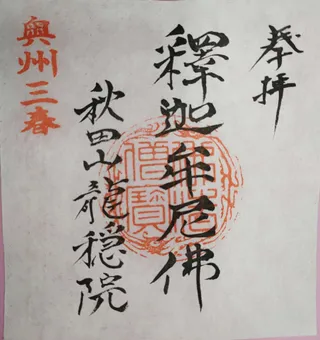 奉拝
釋迦牟尼佛
佛法僧寶
秋田山龍穏院
奥州三春